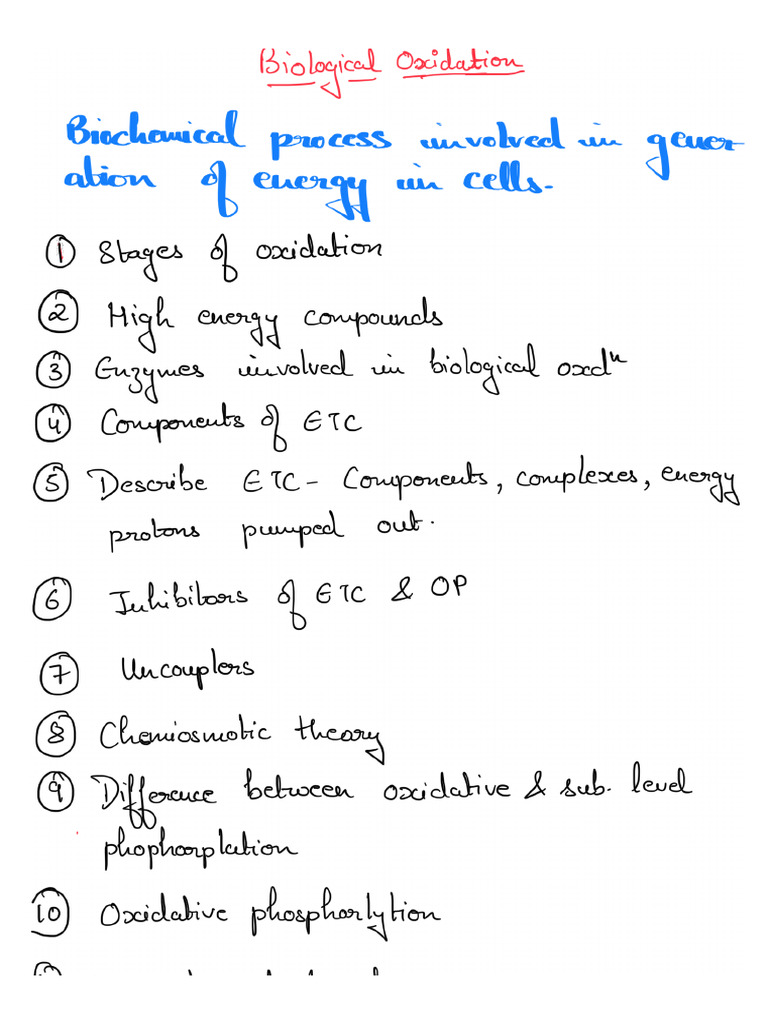 Biological Oxidation
Biochemical process involved in gener-
ation of energy in cells.
① Stages of oxidation
② High energy compounds
③ Enzymes involved in biological oxdⁿ
④ Components of ETC
⑤ Describe ETC - Components, complexes, energy
protons pumped out.
⑥ Inhibitors of ETC & OP
⑦ Uncouplers
⑧ Chemiosmotic theory
⑨ Difference between oxidative & sub. level
phophorplation
⑩ Oxidative phosphorlytion